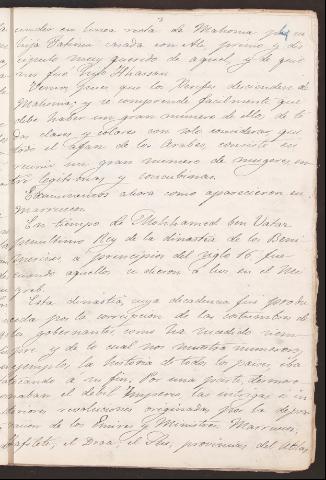 cienden en linea recta de Mahoma y de su
hija Fatima casada con Alí primo y dis
cipulo muy querido de aquel, y de quie
nes fue hijo Hhassan.
Vemos pues que los Xerifes descienden de
Mahoma; y se comprende facilmente que
debe haber un gran numero de ellos, de to
dos clases y colores con solo considerar que
todo el afan de los Arabes, consiste en
reunir un gran numero de mugeres en
tre legitimas y concubinas.
Examinemos ahora como aparecieron en
Marruecos.
En tiempo de Mohhamed ben Vatar
penultimo Rey de la dinastia de los Beni
Merines, a principios del siglo 16, fue
cuando aquellos se dieron a luz en el Mo
greb.
Esta dinastia, cuya decadencia fue produ
cida por la corrupcion de las costumbres de
los gobernantes como ha sucedido siem
pre, y de lo cual nos muestra numerosos
ejemplos, la historia de todos los paises, iba
tocando a su fin. Por una parte desmoro
naban el debil Imperio, las intrigas e in
teriores revoluciones originadas por la deper
sion de los Emires y Ministros Marruecos,
Tafilete, el Draa, el Sus, provincias del Atlas,